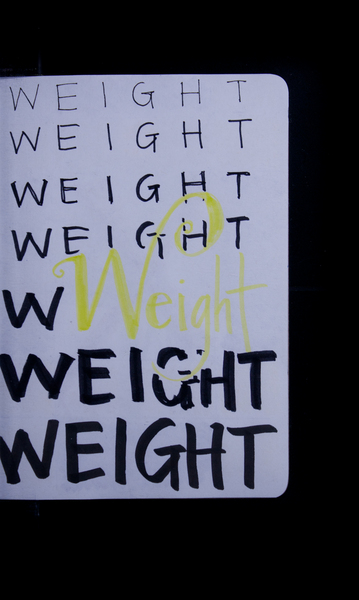 WEIGHT
WEIGHT
WEIGHT
WEIGHT
W Weight
WEIGHT
WEIGHT